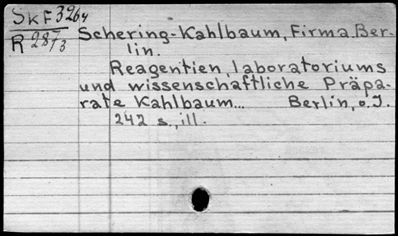 SKF 3264
R 2873
Schering-Kahlbaum, Firma. Ber-
lin.
Reagentien, laboratoriums
und wissenschaftliche Präpa-
rate Kahlbaum... Berlin, o.J.
242 s., ill.